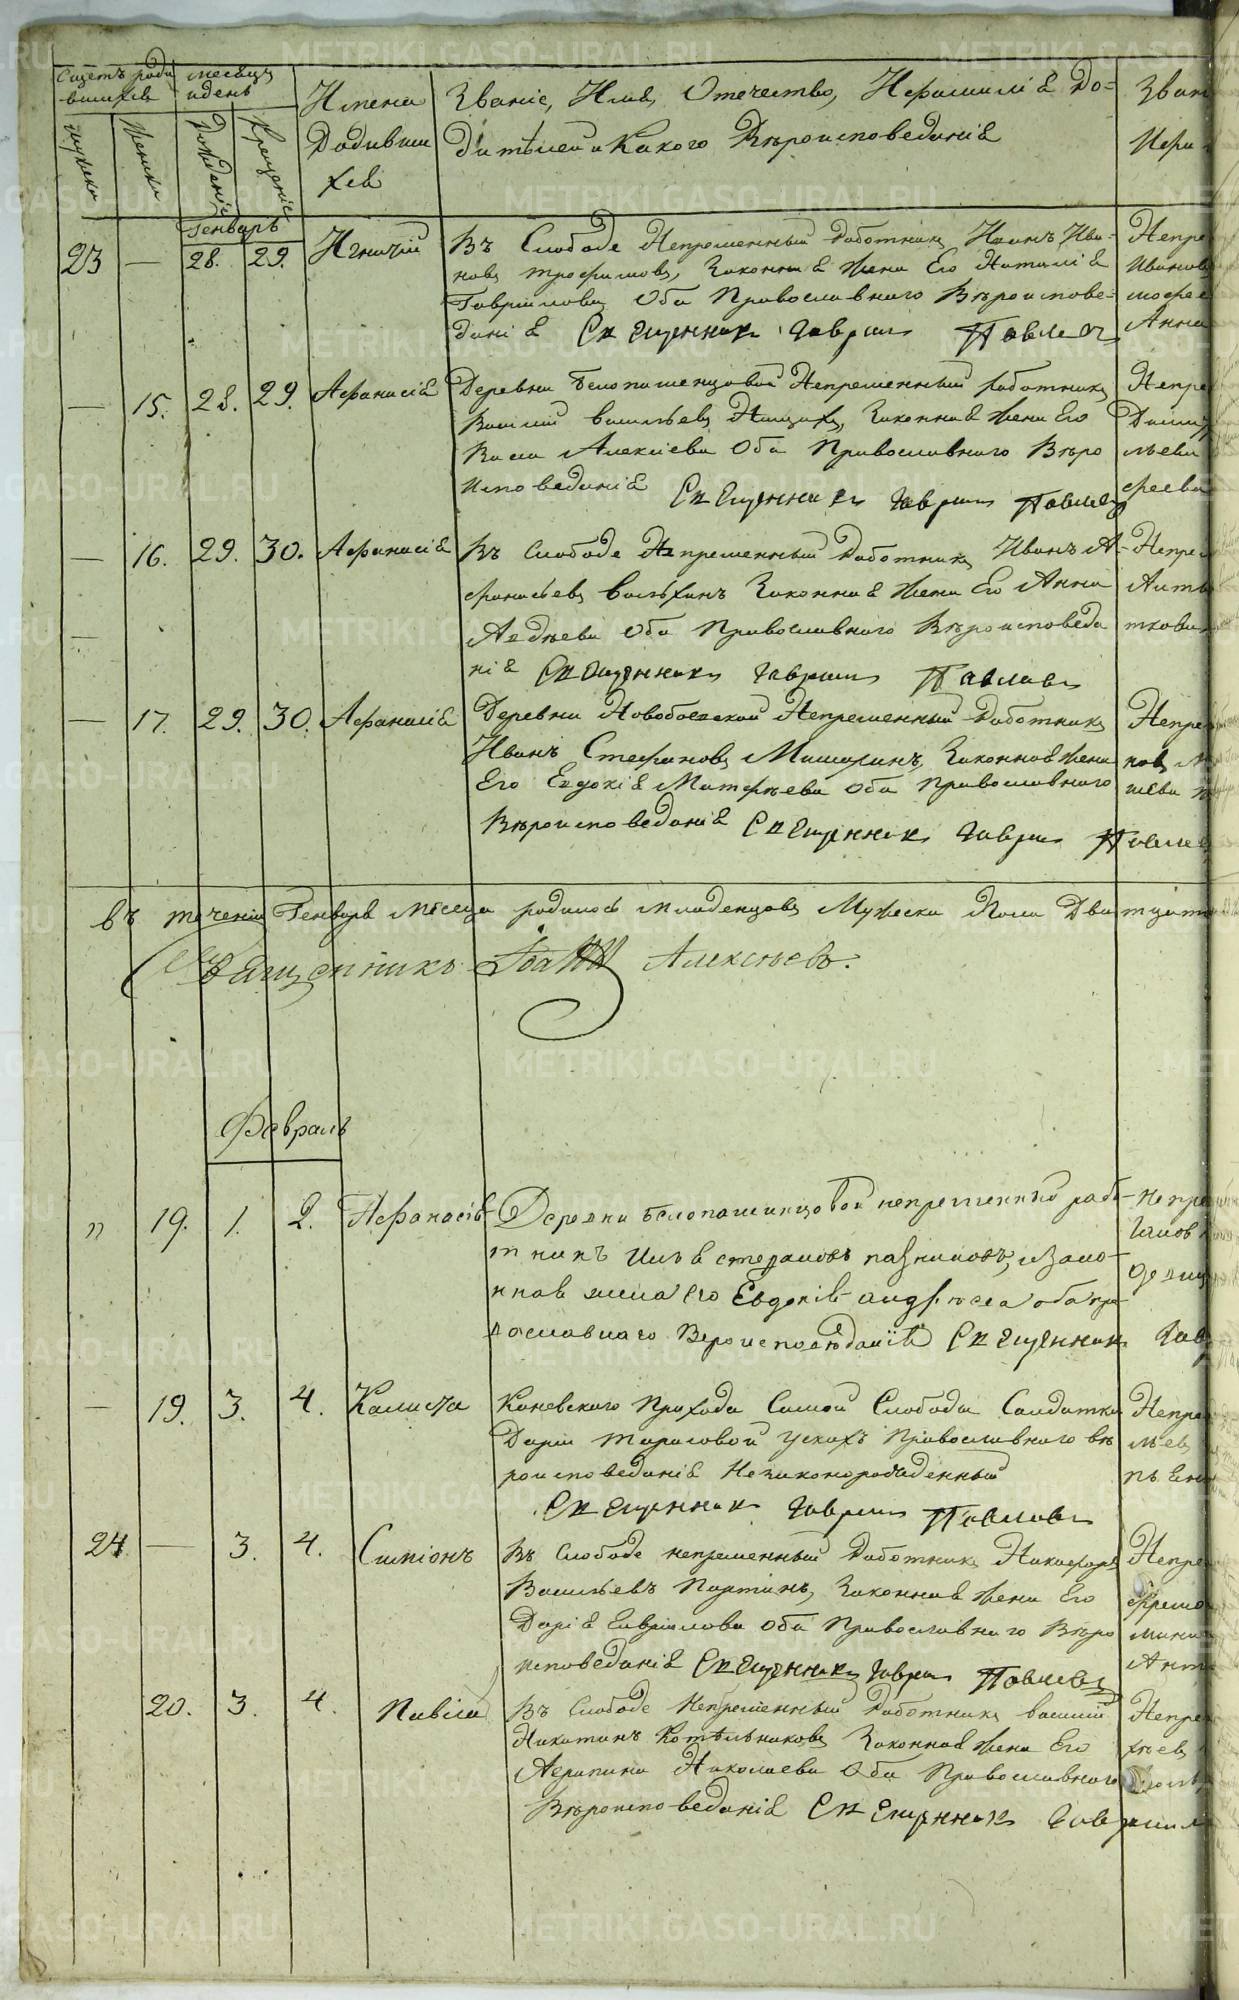 Счетъ роди
вшихся
месяцъ
и день
Имена
Родивши
хся
Званіе, Имя, Отечество, И Фамилія Ро-
дителей и Какого Вѣроисповеданія
Зван
мужеска
Женска
Рожденія
Крещенія
Генварь
23 — 28. 29. Игнатій
Въ Слободе Непременный Работникъ Иванъ Ива-
новъ трофимовъ, Законная Жена Его Наталія
Гавриілова Оба Православнаго Вѣроиспове-
данія Священникъ Гавриилъ Павловъ
Непре
Ивановъ
Анна
— 15. 28. 29. Афанасія
Деревни Белопашенцовой Непременный работникъ
Василій Васильевъ Законная Жена Его
Васса Алексіева Оба Православнаго Вѣро
исповеданія Священникъ Гавриилъ Павловъ
Непре
— 16. 29. 30. Афанасія
Въ Слободе Непременный Работникъ Иванъ А-
фанасьевъ Законная Жена Его Анна
Авдѣева Оба Православнаго Вѣроисповеда
нія Священникъ Гавриилъ Павловъ
Непре
— 17. 29. 30. Афанасія
Деревни Непременный Работникъ
Иванъ Стефановъ Мишаринъ, Законная Жена
Его Евдокія Матфѣева Оба Православнаго
Вѣроисповеданія Священникъ Гавриилъ Павловъ
Непре
новъ
въ теченіи Генваря месеца родилось младенцовъ Мужеска Пола Дватцать
Священникъ Іоаннъ Алексѣевъ.
Февраль
" 19. 1. 2. Афанасія
Деревни Белопашинцовой непременный рабо-
тникъ Илья стефановъ пазниковъ, и зако-
нная жена его Евдокія андреева оба пра-
вославнаго Вероисповѣданія Священникъ Гав
непре
— 19. 3. 4. Калиста
Каневскаго Прихода Самой Слободы Солдатки
Дарьи тарасовой Православнаго вѣ
роисповеданія Незаконорожденный
Священникъ Гавриилъ Павловъ
Непре
24 — 3. 4. Симіонъ
Въ Слободе непременный Работникъ Никифоръ
Васильевъ Партинъ, Законная Жена Его
Дарія Гавриілова Оба Православнаго Вѣро
исповеданія Священникъ Гавриилъ Павловъ
Непре
20. 3. 4. Павла
Въ Слободе Непременный Работникъ Василій
Никитинъ Котѣльниковъ Законная Жена Его
Агрипина Николаева Оба Православнаго
Вѣроисповеданія Священникъ Гавриилъ
Непре